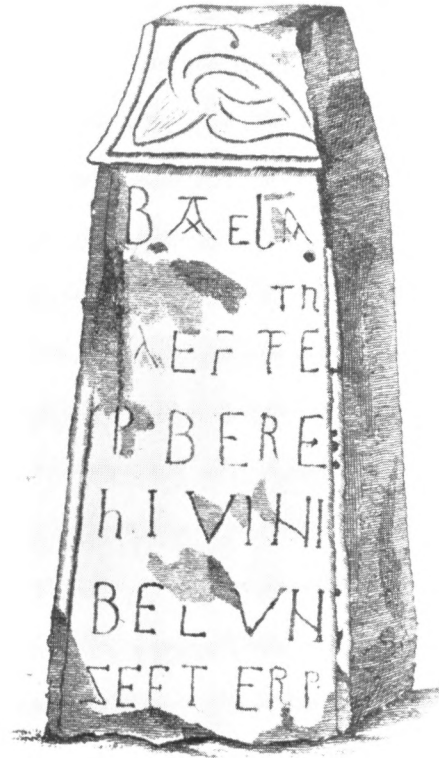 BAELA
TR
AEFTE
P BERE
hI VINI
BELVN
ZEFTERP